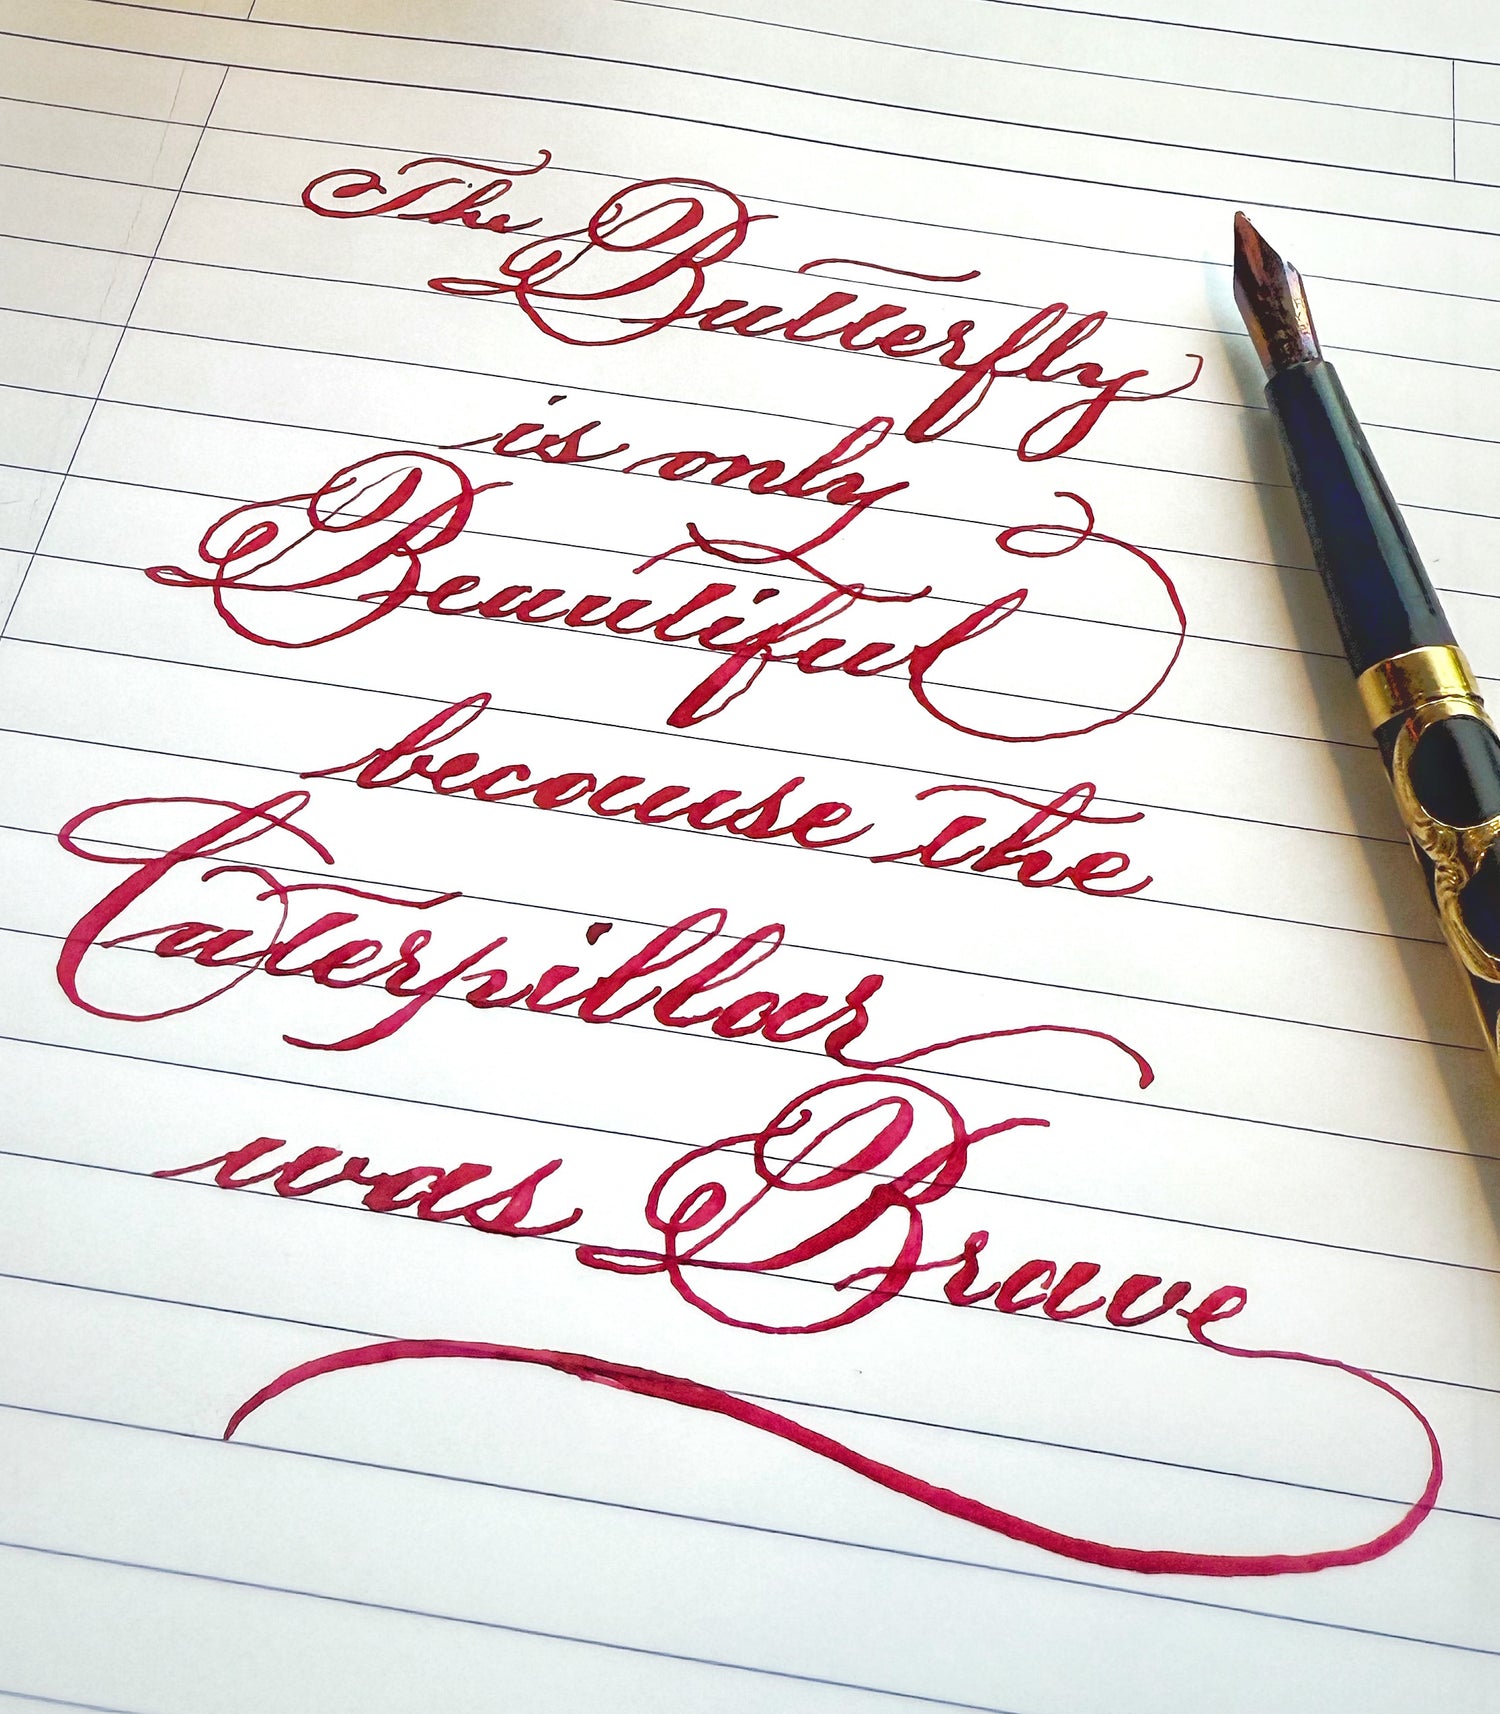 The Butterfly
is only
Beautiful
because the
Caterpillar
was Brave